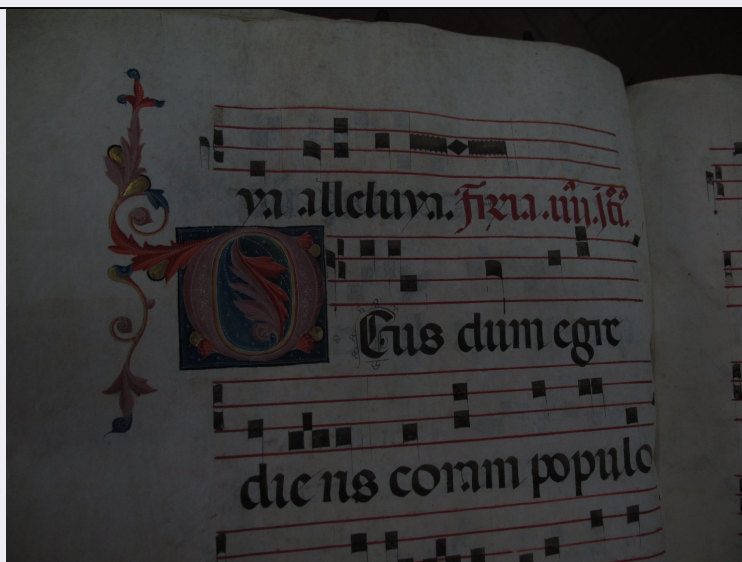 ya alleluya. Feria .iiij.
DEus dum egre
die ns coram populo